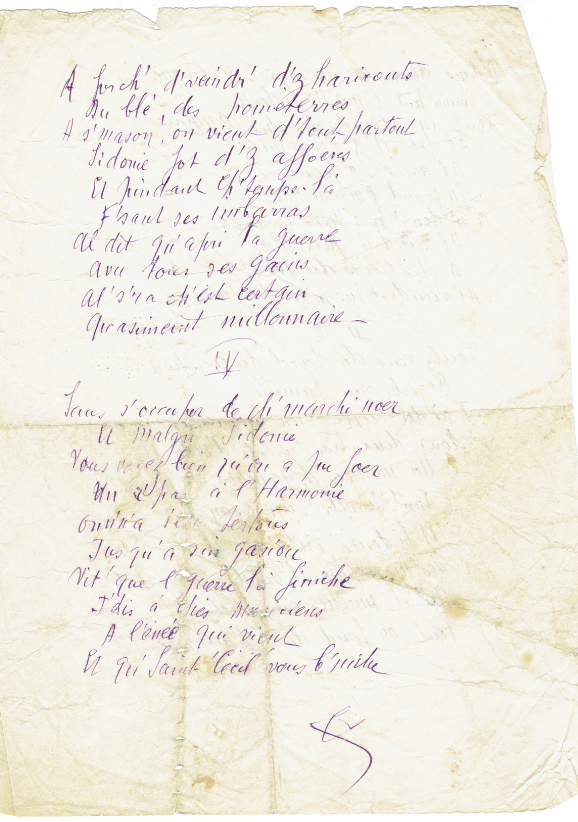 A forch' d'veindr' d'z'haricouts
Du blé, des pometerres
A s'mason, on vient d'tout partout
Sidonie fot d'z affoères
Et pindant ch'temps-là
F'sant ses imbarras
Al dit qu'apri la guerre
avu tous ses gains
al's'ra ch'est certain
Quasimeint millonnaire –
IV
Sans s'occuper de ch'marchi noer
Et malgri Sidonie
Vous veyez bien qu'in a pu foer
Un r'pas à l'Harmonie
Jusqu'a sin gasiou
Vit' que l'guerre là finiche
J'dis à ches musiciens
A l'énée qui vient
Et qu'Saint'Cécil'vous b'niche